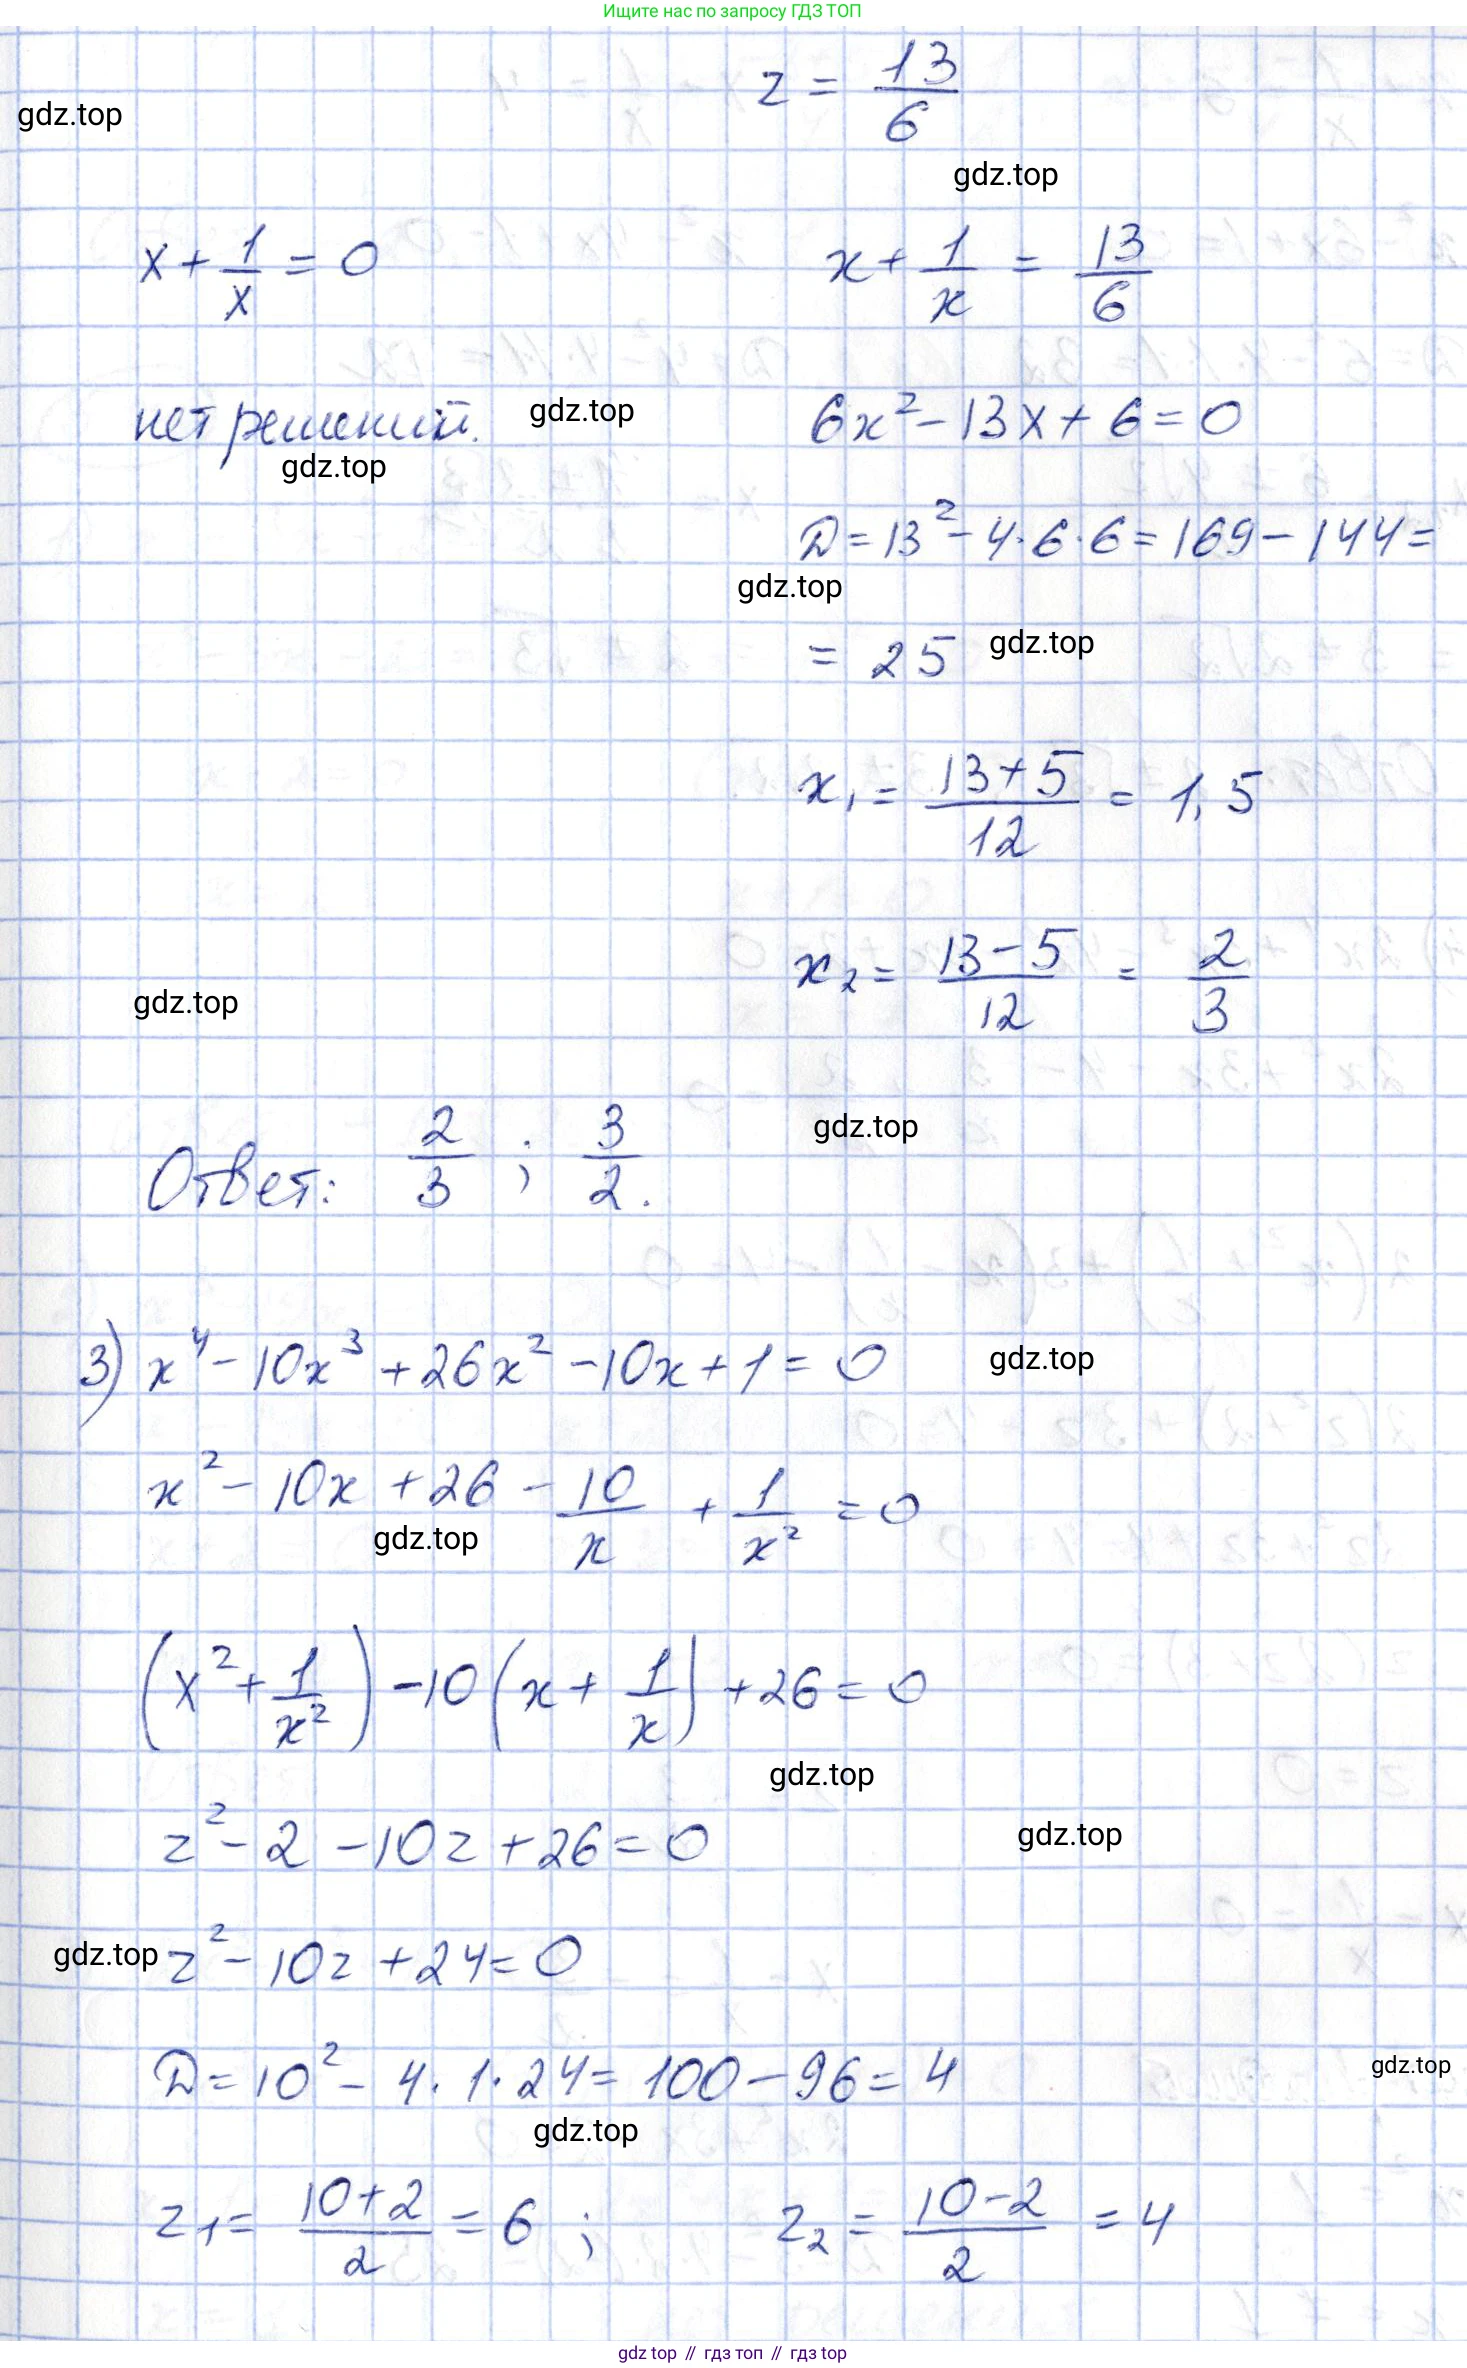 Ищите нас по запросу ГДЗ ТОП
z = 13/6
gdz.top
gdz.top
x + 1/x = 0
x + 1/x = 13/6
нет решений.
gdz.top
6x² - 13x + 6 = 0
gdz.top
D = 13² - 4·6·6 = 169 - 144 =
gdz.top
= 25
gdz.top
x₁ = (13+5)/12 = 1,5
x₂ = (13-5)/12 = 2/3
gdz.top
gdz.top
Ответ: 2/3 ; 3/2.
3) x⁴ - 10x³ + 26x² - 10x + 1 = 0
gdz.top
x² - 10x + 26 - 10/x + 1/x² = 0
gdz.top
(x² + 1/x²) - 10(x + 1/x) + 26 = 0
gdz.top
z² - 2 - 10z + 26 = 0
gdz.top
gdz.top
z² - 10z + 24 = 0
D = 10² - 4·1·24 = 100 - 96 = 4
gdz.top
gdz.top
z₁ = (10+2)/2 = 6 ; z₂ = (10-2)/2 = 4
gdz top // гдз топ // гdz top